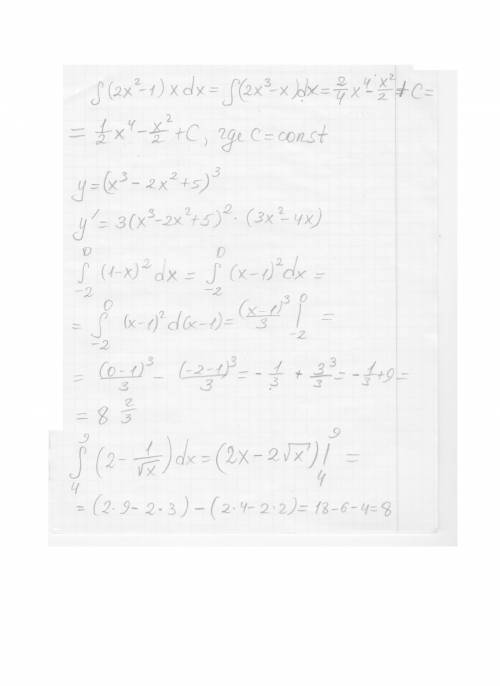 ∫(2x²-1)xdx = ∫(2x³-x)dx = 2/4 x⁴ - x²/2 + C =
= 1/2 x⁴ - x²/2 + C, где C = const
y = (x³ - 2x² + 5)³
y' = 3(x³ - 2x² + 5)² · (3x² - 4x)
∫₋₂⁰ (1-x)² dx = ∫₋₂⁰ (x-1)² dx =
= ∫₋₂⁰ (x-1)² d(x-1) = (x-1)³/3 |₋₂⁰ =
= (0-1)³/3 - (-2-1)³/3 = -1/3 + 3³/3 = -1/3 + 9 =
= 8 2/3
∫₄⁹ (2 - 1/√x) dx = (2x - 2√x)|₄⁹ =
= (2·9 - 2·3) - (2·4 - 2·2) = 18-6-4 = 8